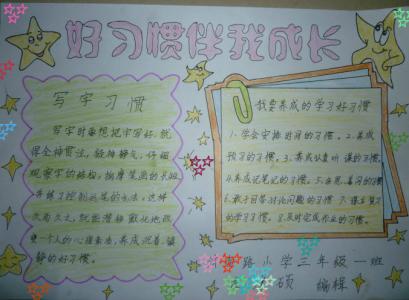 好习惯伴我成长
写字习惯
写字时要想把字写好,就
得全神贯注,敛神静气,仔细
观察字的结构,揣摩笔画的长短
并练习控制运笔的方法,这样
久而久之,就能潜移默化地改
变一个人的心理素质,养成沉着、镇
静的好习惯。
我要养成的学习好习惯
1.学会安排时间的习惯。2.养成
预习的习惯。3.养成认真听课的习惯。
4.养成记笔记的习惯。5.多思、善问的习惯
6.敢于回答讨论问题的习惯 7.课后复习
的学习习惯。8.及时完成作业的习惯。
路小学三年级一班
硕 编辑